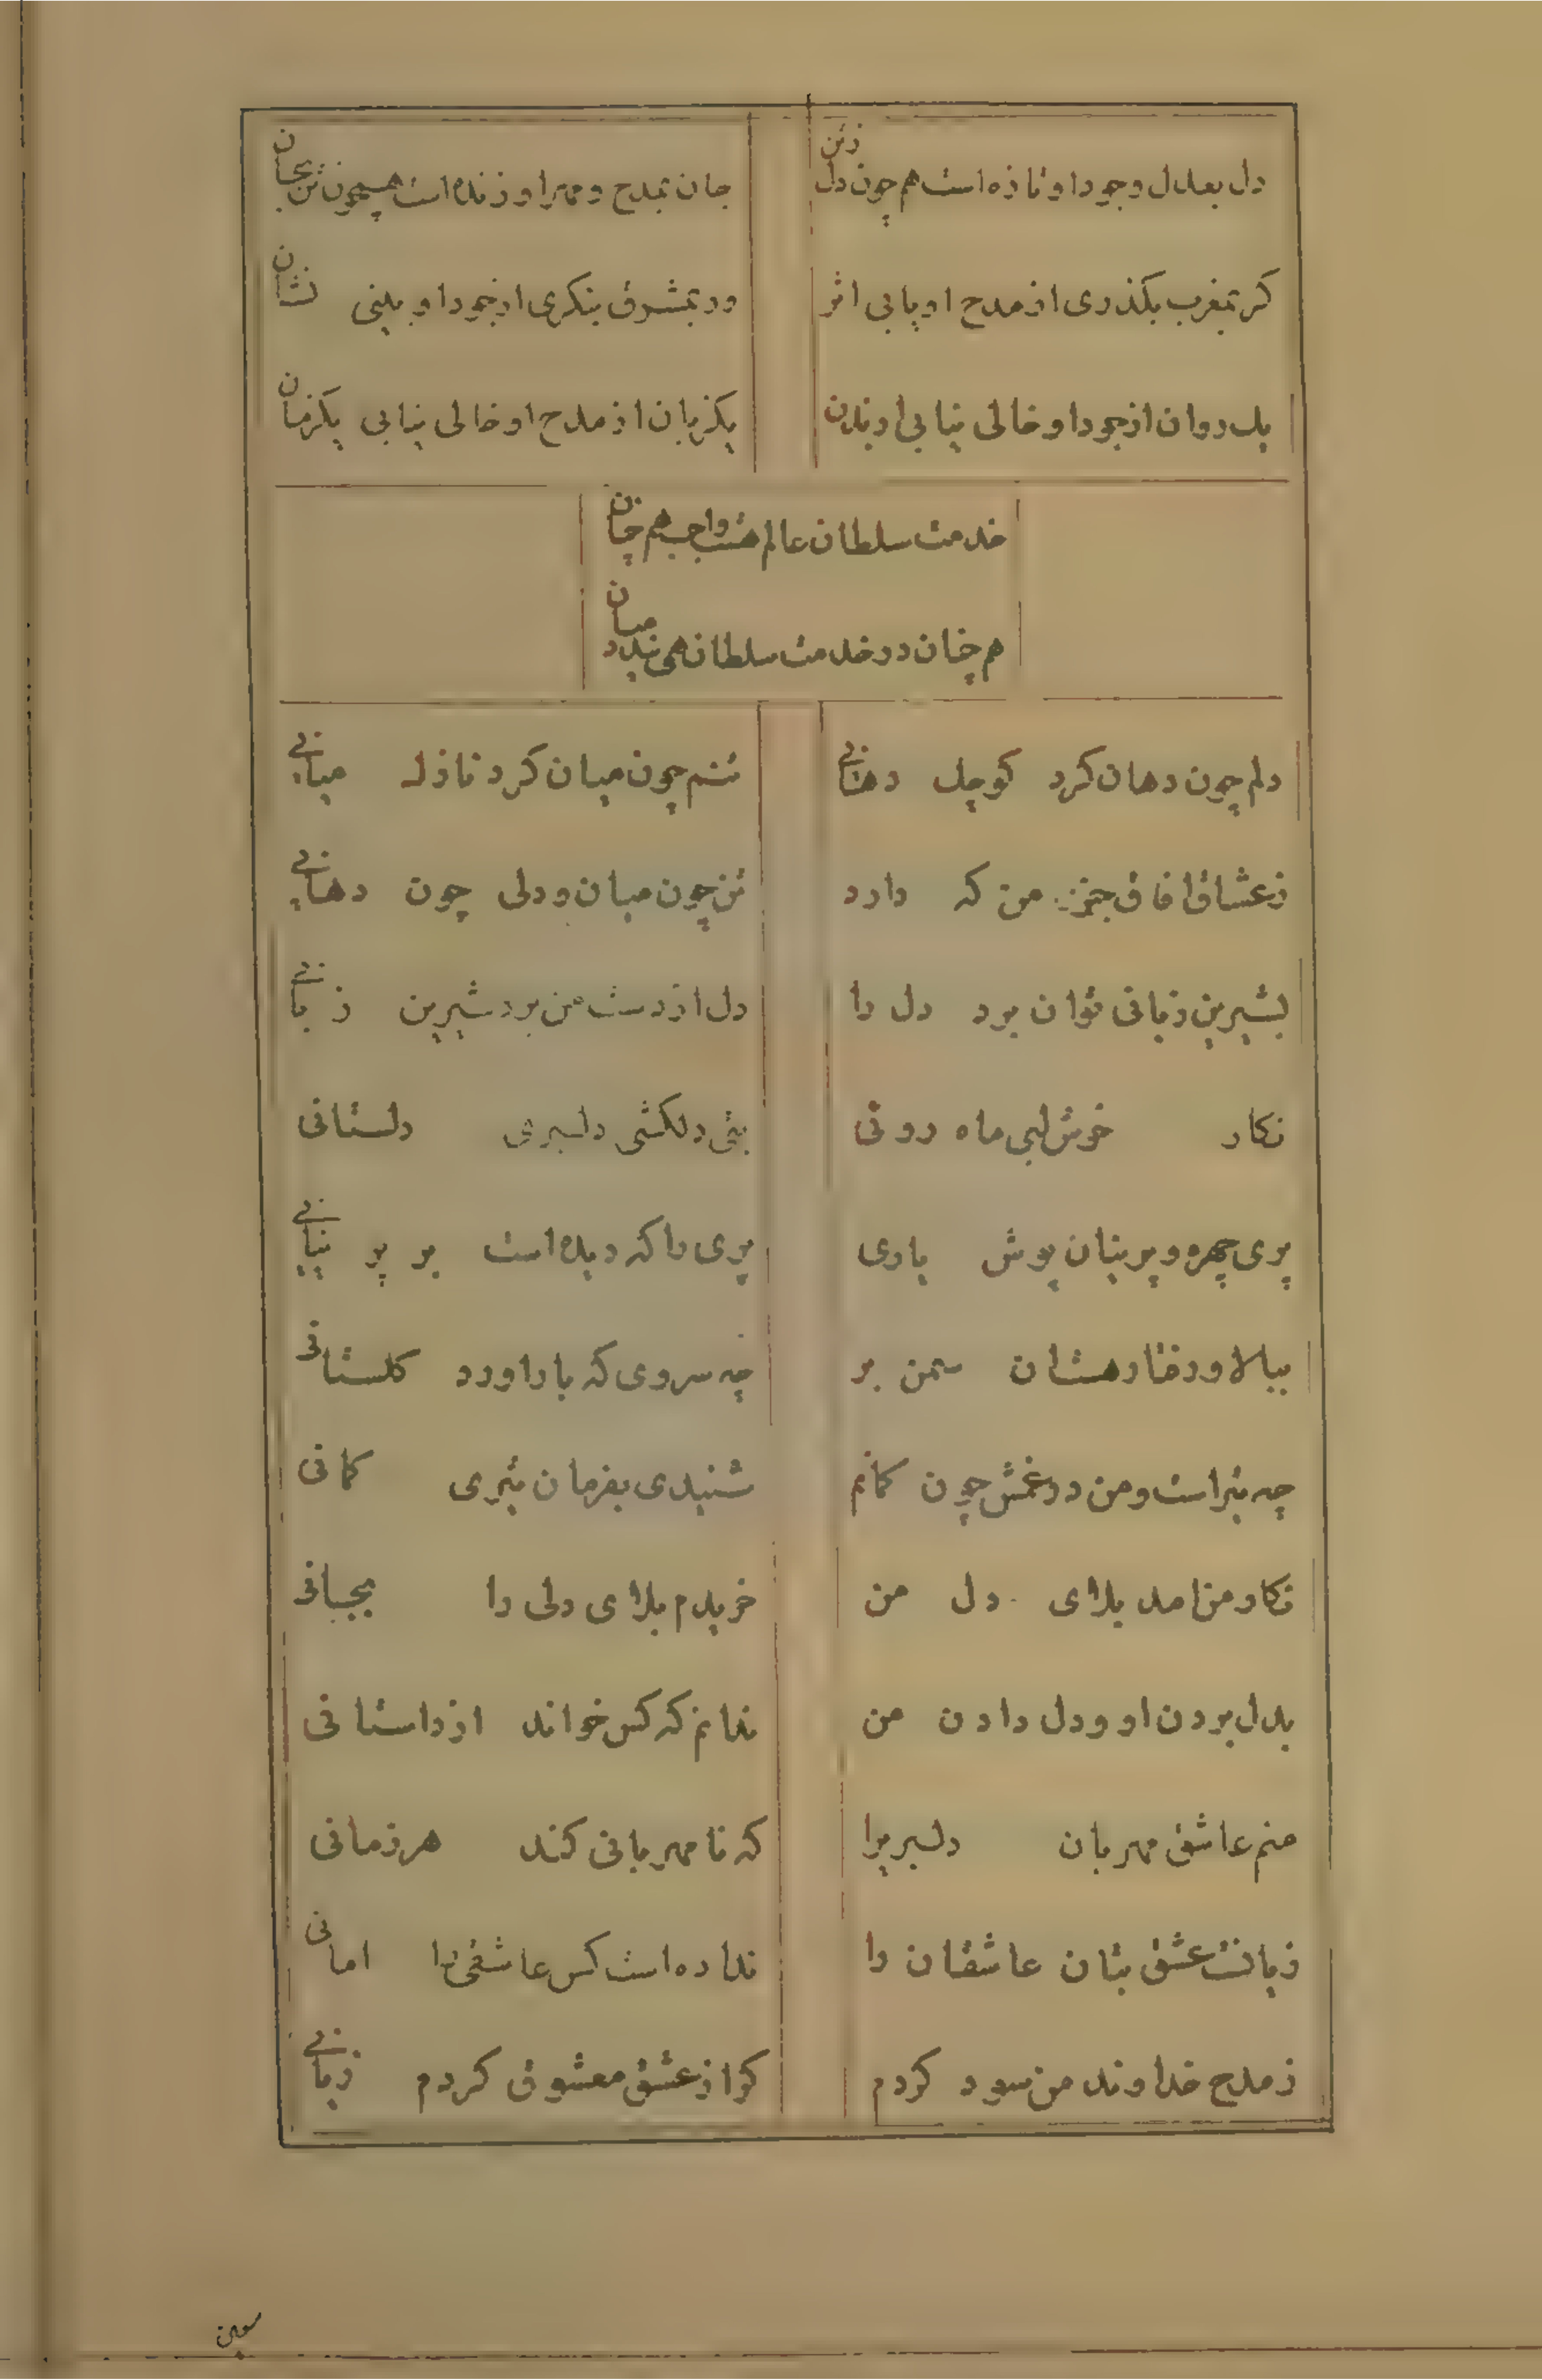 دل بعدل وجود او تازه است هم چون دل زتن جان بمدح و مهر او زنده است همچون تن بجان
کر بمغرب بکذری از مدح او یابی اثر ور بمشرق بنکری از جود او بینی نشان
یک روان از جود او خالی نیابی از بدن یکزبان از مدح او خالی نیابی یکزمان
خدمت سلطان عالم هست واجب هم چنان
هم چنان در خدمت سلطان همی بندد میان
دلم چون دهان کرد کوچک دهانی تنم چون میان کرد نازک میانی
زعشاق افاق جز من که دارد تن چون میان و دلی چون دهانی
بشیرین زبانی توان برد دل را دل از دست من برد شیرین زبانی
نکار خوش لبی ماه روئی بتی دلکشی دلبری دلستانی
پری چهره و پرنیان پوش یاری پری را که دیده است بر پرنیانی
ببالا و رخسار هستان سمن بر چه سروی که بار اورد کلستانی
چه تیر است و من در غمش چون کمانم شنیدی بفرمان تیری کمانی
نکار من امد بلاای دل من خریدم بلاای دلی را بجانی
بدل بردن او و دل دادن من ندانم که کس خواند از داستانی
منم عاشق مهربان دلبریرا که نا مهربانی کند هر زمانی
زیانست عشق بتان عاشقان را نداده است کس عاشقی را امانی
ز مدح خداوند من سود کردم کر از عشق معشوق کردم زیانی